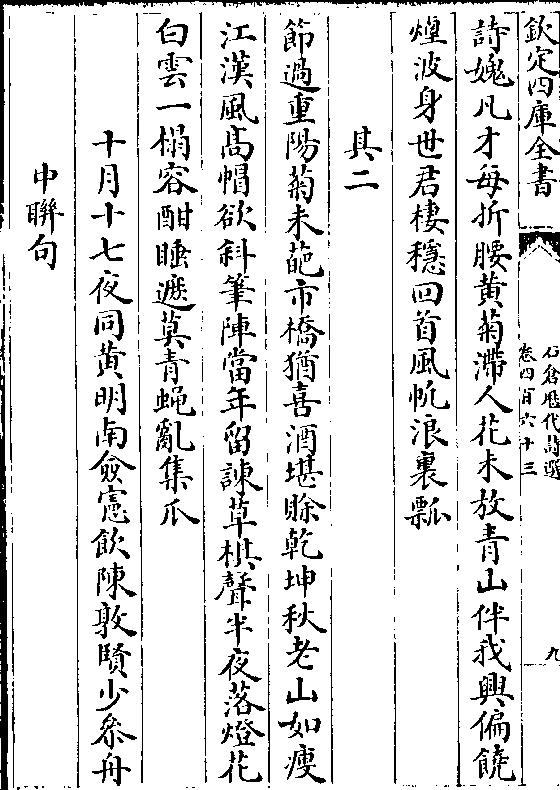 欽定四庫全書
石倉歷代詩選
卷四百六十三
九
詩媿凡才每折腰黃菊滯人花未放青山伴我興偏饒
煙波身世君棲穩回首風帆浪裏瓢
其二
節過重陽菊未葩市橋猶喜酒堪賒乾坤秋老山如瘦
江漢風高帽欲斜筆陣當年留諫草棋聲半夜落燈花
白雲一榻容酣睡遮莫青蠅亂集瓜
十月十七夜同黃明南僉憲飲陳敦賢少參舟
中聯句